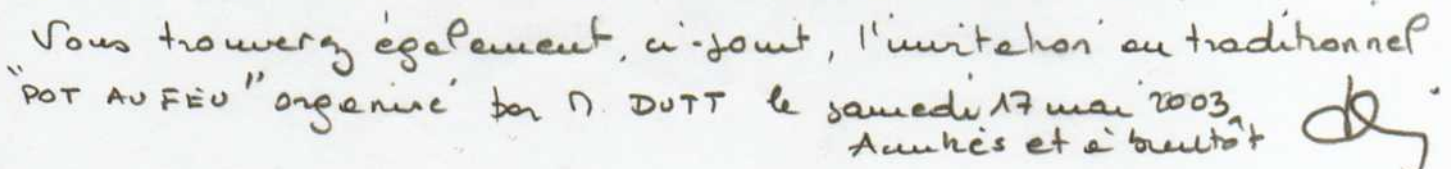 Vous trouverez également, ci-joint, l'invitation au traditionnel
"POT AU FEU" organisé par M. DUTT le samedi 17 mai 2003
Amitiés et à bientôt